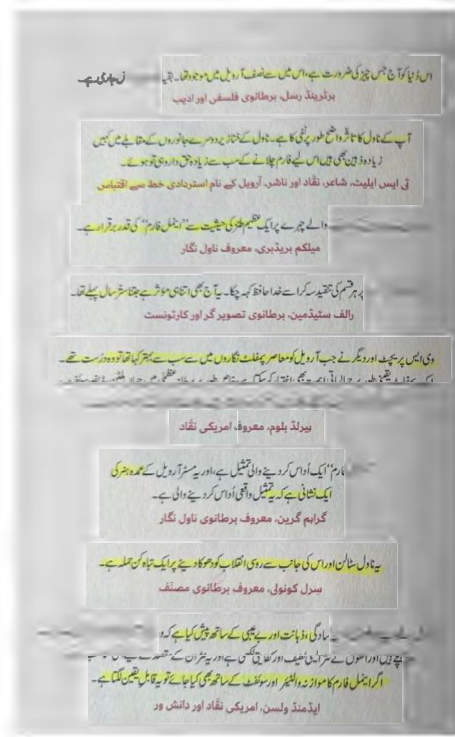 اس دنیا کو آج جس چیز کی ضرورت ہے، اس میں سے نصف آرویل میں موجود تھا۔ بقیہ
برٹرینڈ رسل، برطانوی فلسفی اور ادیب
آپ کے ناول کا تاثر واضح طور پر نفی کا ہے۔ ناول کے خنازیر دوسرے جانوروں کے مقابلے میں کہیں
زیادہ ذہین بھی ہیں اس لیے فارم چلانے کے سب سے زیادہ حق دار وہی تو ہوئے۔
ٹی ایس ایلیٹ، شاعر، نقاد اور ناشر، آرویل کے نام استردادی خط سے اقتباس
والے چہرے پر ایک عظیم طنز کی حیثیت سے ”اینیمل فارم“ کی قدر برقرار ہے۔
میلکم بریڈبری، معروف ناول نگار
پر ہر قسم کی تنقید سہ کر اسے خدا حافظ کہہ چکا۔ یہ آج بھی اتنا ہی موثر ہے جتنا ستر سال پہلے تھا۔
رالف سٹیڈمین، برطانوی تصویر گر اور کارٹونسٹ
وی ایس پریچٹ اور دیگر نے جب آرویل کو معاصر پمفلٹ نگاروں میں سے سب سے بہتر کہا تھا تو وہ درست تھے۔
ہیرلڈ بلوم، معروف امریکی نقاد
فارم“ ایک اُداس کر دینے والی تمثیل ہے، اور یہ مسٹر آرویل کے عمدہ ہنر کی
ایک نشانی ہے کہ یہ تمثیل واقعی اُداس کر دینے والی ہے۔
گراہم گرین، معروف برطانوی ناول نگار
یہ ناول سٹالن اور اس کی جانب سے روسی انقلاب کو دھوکا دینے پر ایک تباہ کن حملہ ہے۔
سرل کونولی، معروف برطانوی مصنف
سادگی، ذہانت اور بے عیبی کے ساتھ پیش کیا ہے کہ
اگر اینیمل فارم کا موازنہ والٹیئر اور سوئفٹ کے ساتھ بھی کیا جائے تو یہ قابلِ یقین لگتا ہے۔
ایڈمنڈ ولسن، امریکی نقاد اور دانش ور